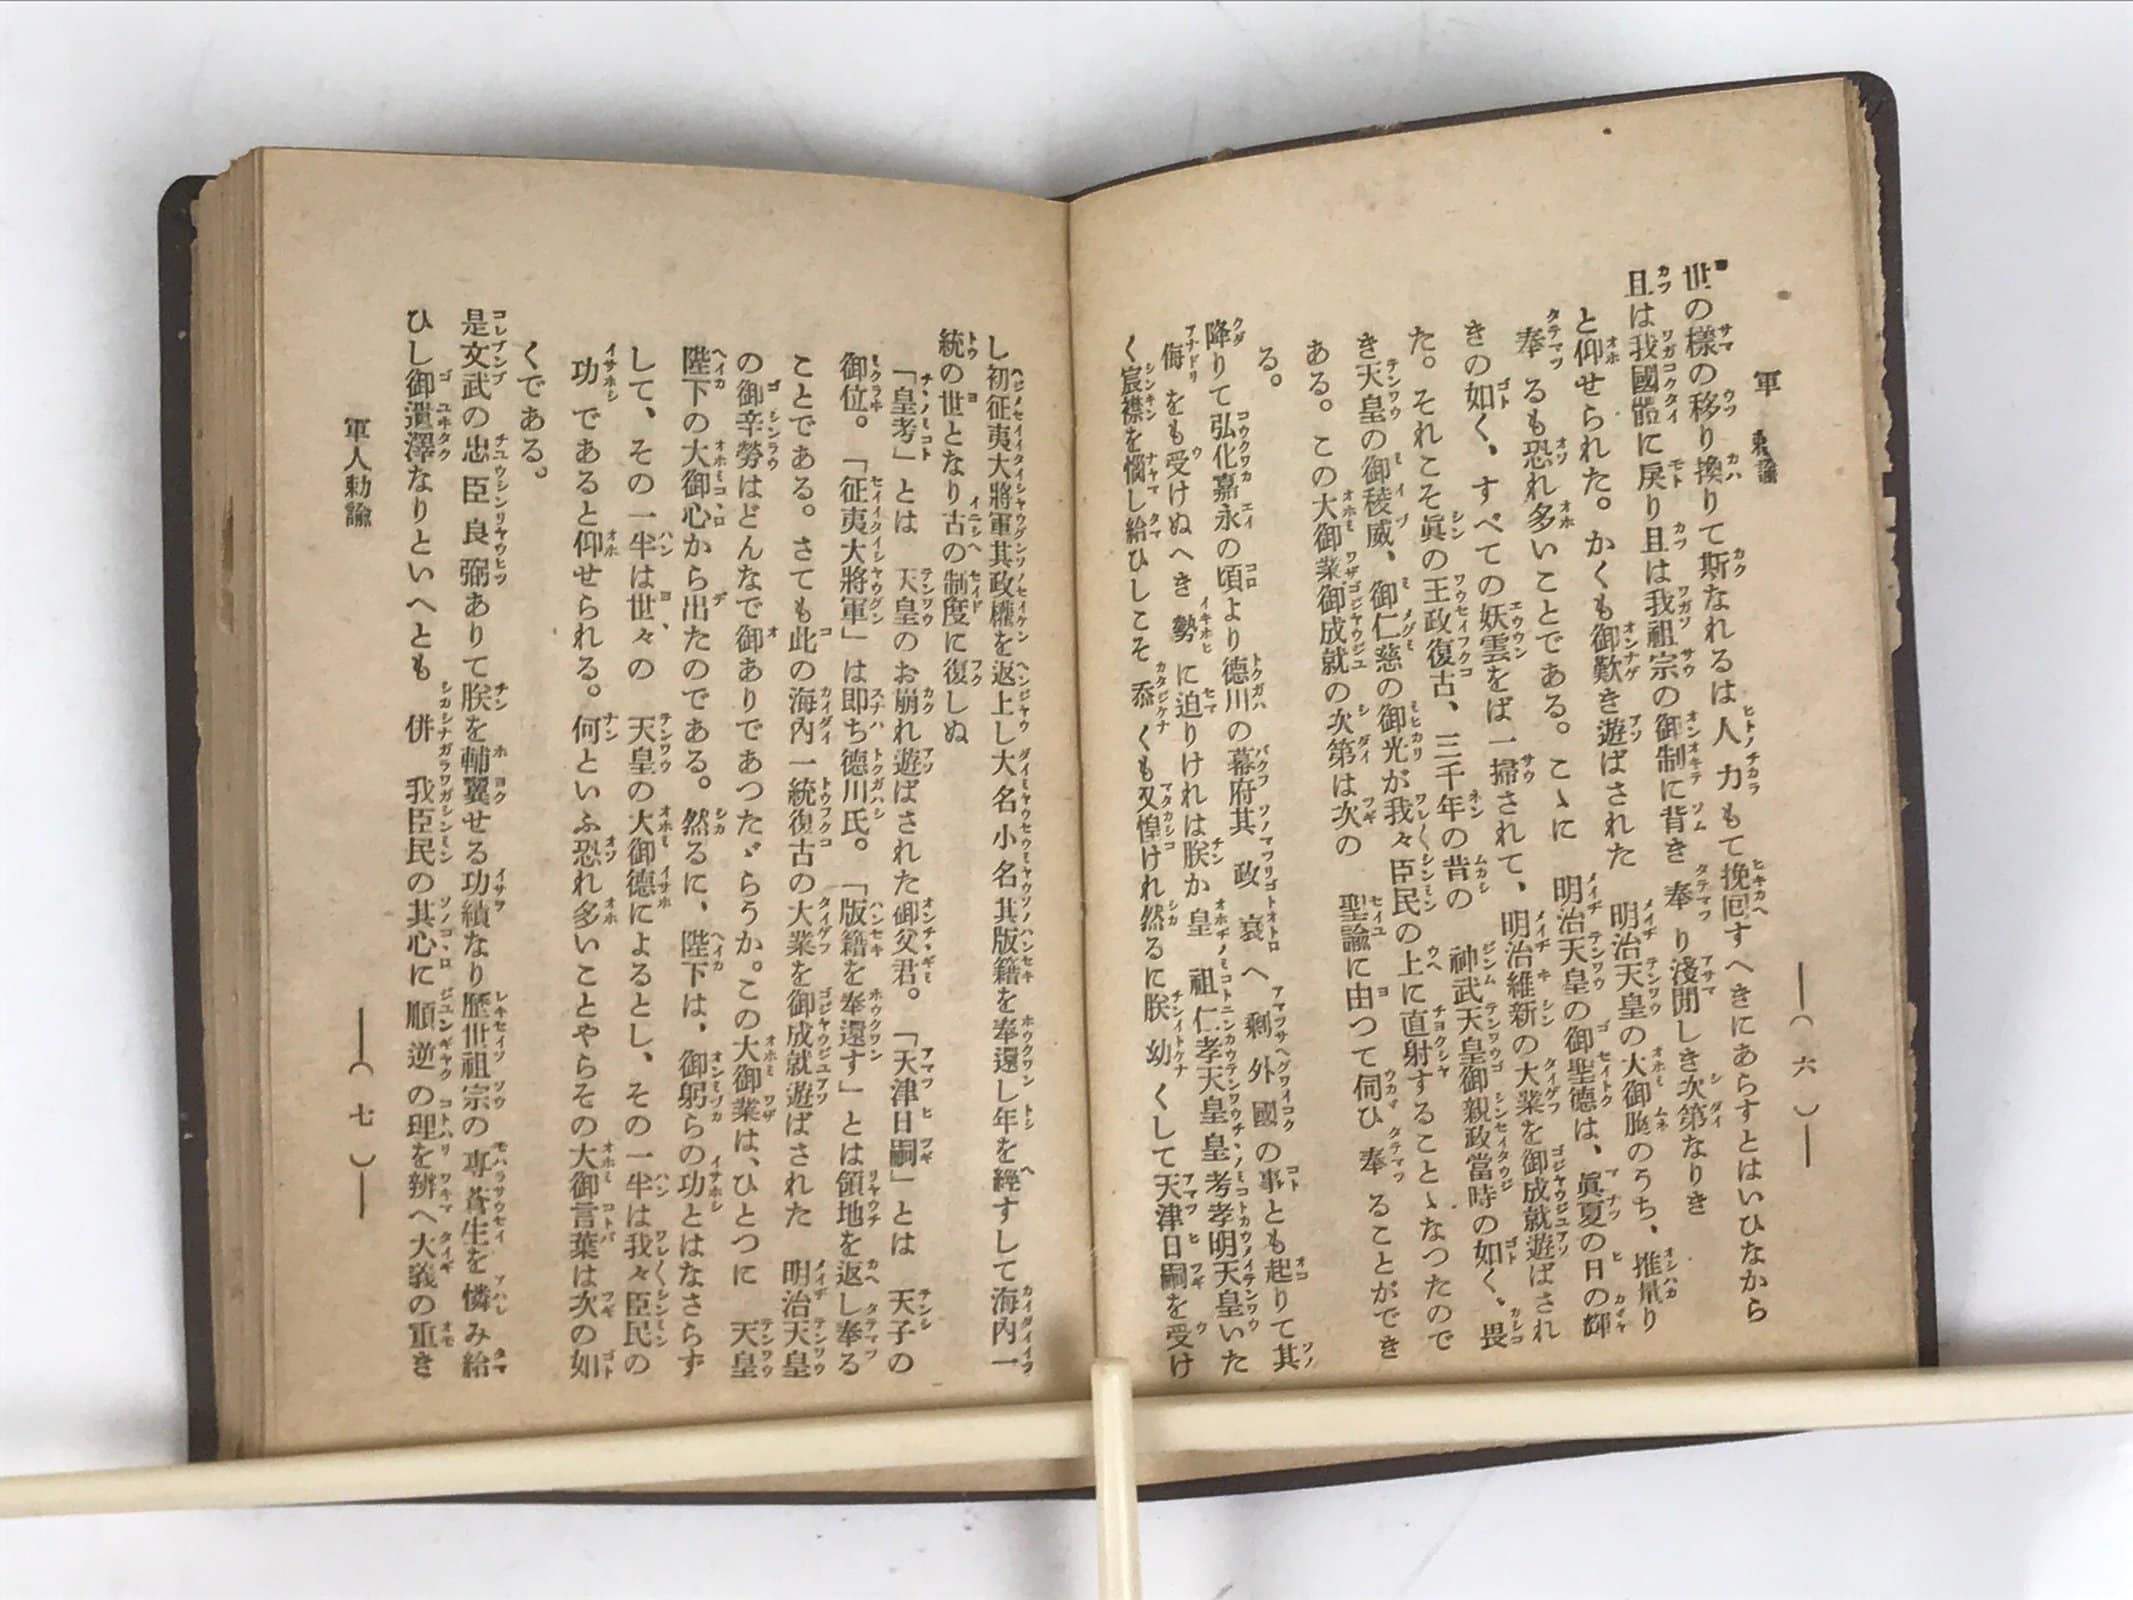 軍 勅諭
―(六)―
世の樣の移り換りて斯なれるは人力もて挽囘すへきにあらすとはいひなから
且は我國體に戻り且は我祖宗の御制に背き奉り淺間しき次第なりき
と仰せられた。かくも御歎き遊ばされた 明治天皇の大御胸のうち、推量り
奉るも恐れ多いことである。こゝに 明治天皇の御聖德は、眞夏の日の輝
きの如く、すべての妖雲をば一掃されて、明治維新の大業を御成就遊ばされ
た。それこそ眞の王政復古、三千年の昔の 神武天皇御親政當時の如く、畏
き天皇の御稜威、御仁慈の御光が我々臣民の上に直射することゝなつたので
ある。この大御業御成就の次第は次の 聖諭に由つて伺ひ奉ることができ
る。
降りて弘化嘉永の頃より德川の幕府其政衰へ剩外國の事とも起りて其
侮をも受けぬへき勢に迫りけれは朕か皇祖仁孝天皇皇考孝明天皇いた
く宸襟を惱し給ひしこそ忝くも又惶けれ然るに朕幼くして天津日嗣を受け
し初征夷大將軍其政權を返上し大名小名其版籍を奉還し年を經すして海內一
統の世となり古の制度に復しぬ
「皇考」とは 天皇のお崩れ遊ばされた御父君。「天津日嗣」とは 天子の
御位。「征夷大將軍」は即ち德川氏。「版籍を奉還す」とは領地を返し奉る
ことである。さても此の海內一統復古の大業を御成就遊ばされた 明治天皇
の御辛勞はどんなで御ありであつたゞらうか。この大御業は、ひとつに 天皇
陛下の大御心から出たのである。然るに、陛下は、御躬らの功とはなさらず
して、その一半は世々の 天皇の大御德によるとし、その一半は我々臣民の
功であると仰せられる。何といふ恐れ多いことやらその大御言葉は次の如
くである。
是文武の忠臣良弼ありて朕を輔翼せる功績なり歷世祖宗の專蒼生を憐み給
ひし御遺澤なりといへとも併我臣民の其心に順逆の理を辨へ大義の重き
軍人勅諭
―(七)―